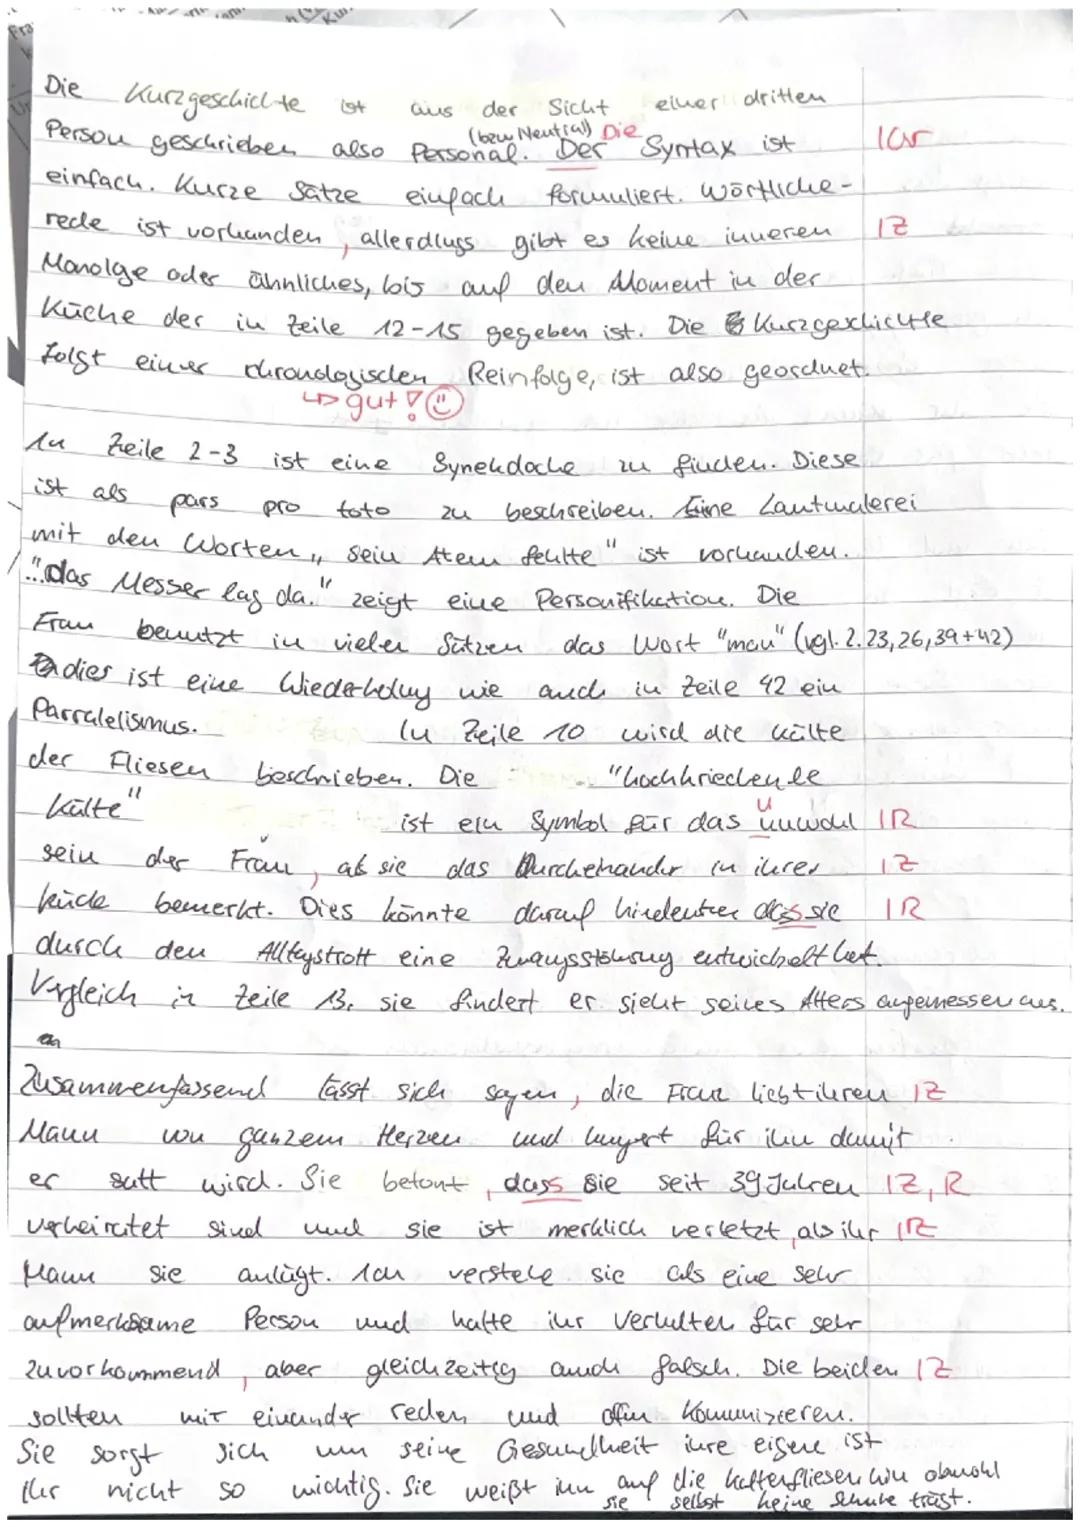 Die Kurzgeschichte ist aus der Sicht einer dritten
Person geschrieben also Personal. (bzw Neutral) Die Der Syntax ist |Gr
einfach. Kurze Sätze einfach formuliert. Wörtliche-
rede ist vorhanden, allerdings gibt es keine inneren |Z
Monolge oder ähnliches, bis auf den Moment in der
Küche der in Zeile 12-15 gegeben ist. Die Kurzgeschichte
folgt einer chronologischen Reinfolge, ist also geordnet.
↳ gut! ☺
In Zeile 2-3 ist eine Synekdoche zu finden. Diese
ist als pars pro toto zu beschreiben. Eine Lautmalerei
mit den Worten „sein Atem fehlte" ist vorhanden.
"...das Messer lag da." zeigt eine Personifikation. Die
Frau benutzt in vielen Sätzen das Wort "man" (vgl. Z. 23, 26, 39+42)
dies ist eine Wiederholung wie auch in Zeile 42 ein
Parralelismus. In Zeile 10 wird die kälte
der Fliesen beschrieben. Die "hochkriechende
Kälte"
ist ein Symbol für das unwohl |R
sein der Frau, als sie das Durcheinander in ihrer |Z
küche bemerkt. Dies könnte darauf hindeuten dass sie |R
durch den Alltagstrott eine Zwangsstöhrung entwickelt hat.
Vergleich in Zeile 13. sie findert er sieht seines Alters angemessen aus.
Zusammenfassend lässt sich sagen, die Frau liebt ihren |Z
Mann von ganzem Herzen und hungert für ihn damit
er satt wird. Sie betont, dass sie seit 39 Jahren |Z, R
verheiratet sind und sie ist merklich verletzt, als ihr |Z
Mann sie anlügt. Ich verstehe sie als eine sehr
aufmerksame Person und halte ihr Verhalten für sehr
zuvorkommend, aber gleichzeitig auch falsch. Die beiden |Z
sollten mit einander reden und offen Komunizieren.
Sie sorgt sich um seine Gesundheit ihre eigene ist
ihr nicht so wichtig. Sie weißt ihn auf die kaltenfliesen hin obwohl
sie selbst keine Schuhe trägt.